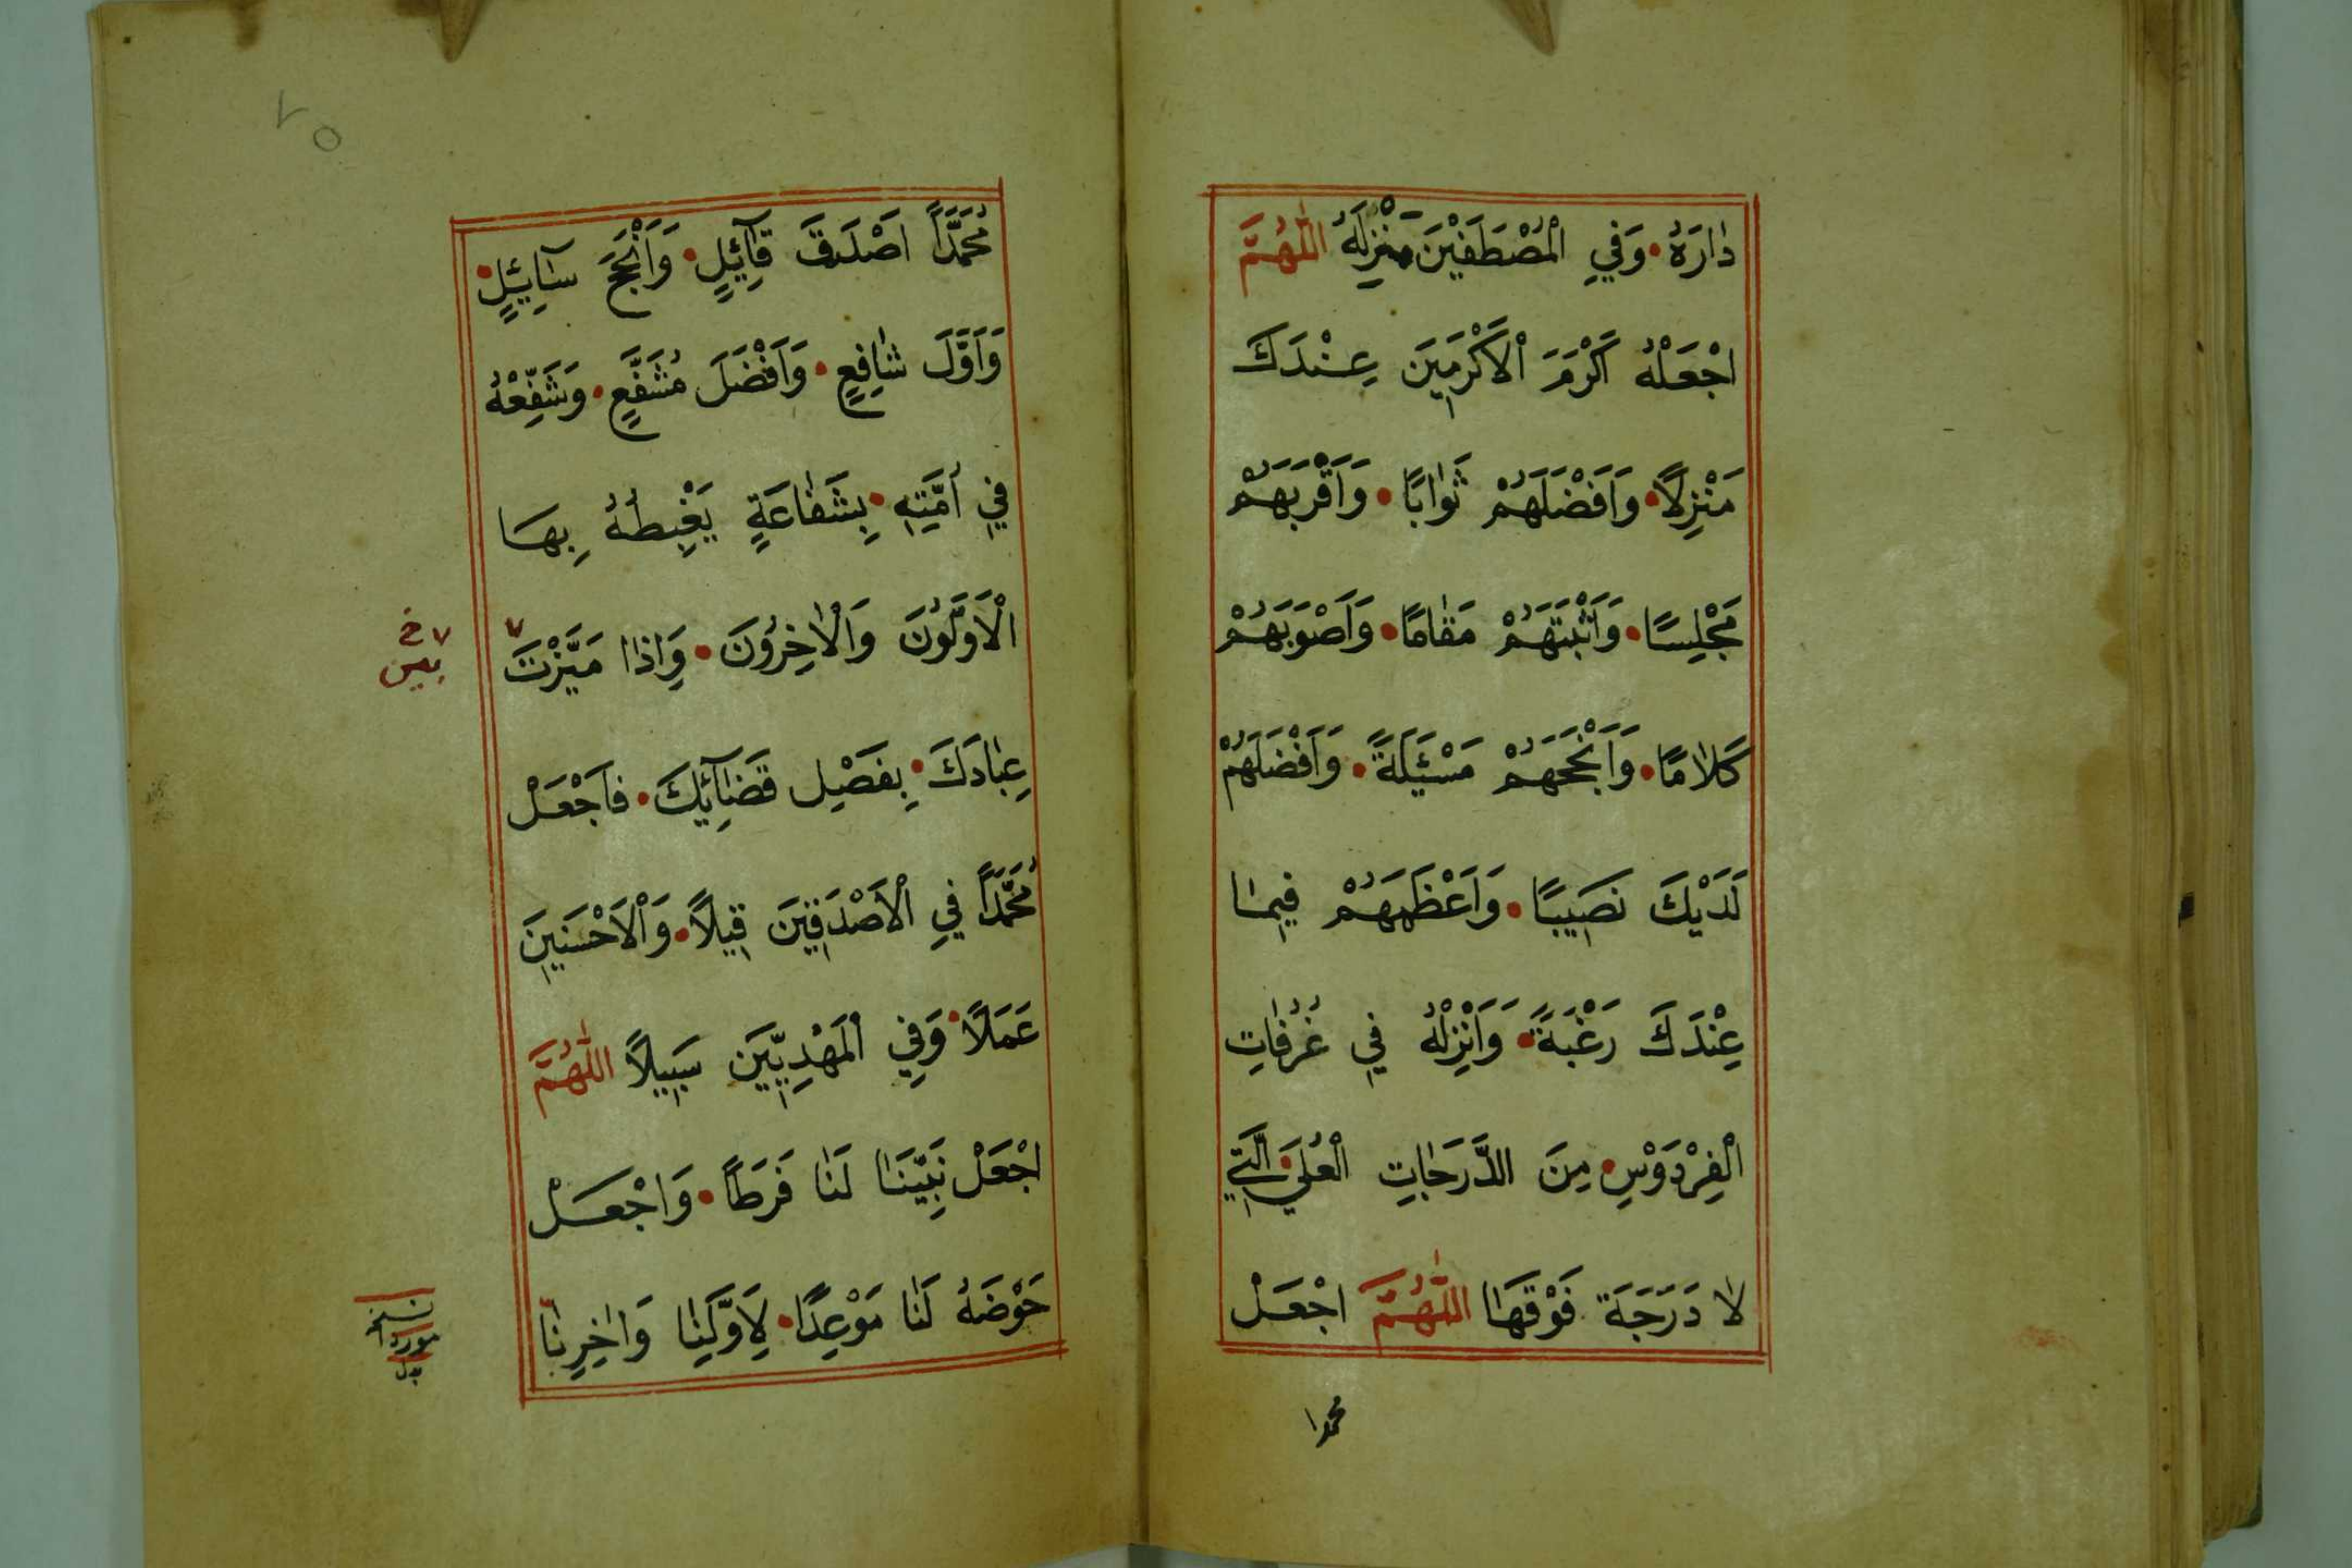 دٰارَهُ • وَفيِ الْمُصْطَفَيْنَ مَنْزِلَهُ اَللّٰهُمَّ
اجْعَلْهُ اَكْرَمَ الْاَكْرَمِينَ عِنْدَكَ
مَنْزِلاً • وَاَفْضَلَهُمْ ثَوٰابًا • وَاَقْرَبَهُمْ
مَجْلِسًا • وَاَثْبَتَهُمْ مَقٰامًا • وَاَصْوَبَهُمْ
كَلاٰمًا • وَاَنْجَحَهُمْ مَسْئَلَةً • وَاَفْضَلَهُمْ
لَدَيْكَ نَصِيبًا • وَاَعْظَمَهُمْ فِيمٰا
عِنْدَكَ رَغْبَةً • وَاَنْزِلْهُ فيِ غُرُفٰاتِ
الْفِرْدَوْسِ • مِنَ الدَّرَجٰاتِ الْعُلىَ • الَّتيِ
لاٰ دَرَجَةَ فَوْقَهٰا اَللّٰهُمَّ اجْعَلْ
محمدا
٢٥
مُحَمَّدًا اَصْدَقَ قٰآئِلٍ • وَاَنْجَحَ سٰآئِلٍ •
وَاَوَّلَ شٰافِعٍ • وَاَفْضَلَ مُشَفَّعٍ • وَشَفِّعْهُ
فيِ اُمَّتِهِ • بِشَفٰاعَةٍ يَغْبِطُهُ بِهَا
الْاَوَّلُونَ وَالْاٰخِرُونَ • وَاِذٰا مَيَّزْتَ
عِبٰادَكَ • بِفَصْلِ قَضٰآئِكَ • فَاجْعَلْ
مُحَمَّدًا فيِ الْاَصْدَقِينَ قِيلاً • وَالْاَحْسَنِينَ
عَمَلاً • وَفيِ الْمَهْدِيِّينَ سَبِيلاً اَللّٰهُمَّ
اجْعَلْ نَبِيَّنٰا لَنٰا فَرَطًا • وَاجْعَلْ
حَوْضَهُ لَنٰا مَوْعِدًا • لِاَوَّلِنٰا وَاٰخِرِنٰا
نسخه
موردا
بدل